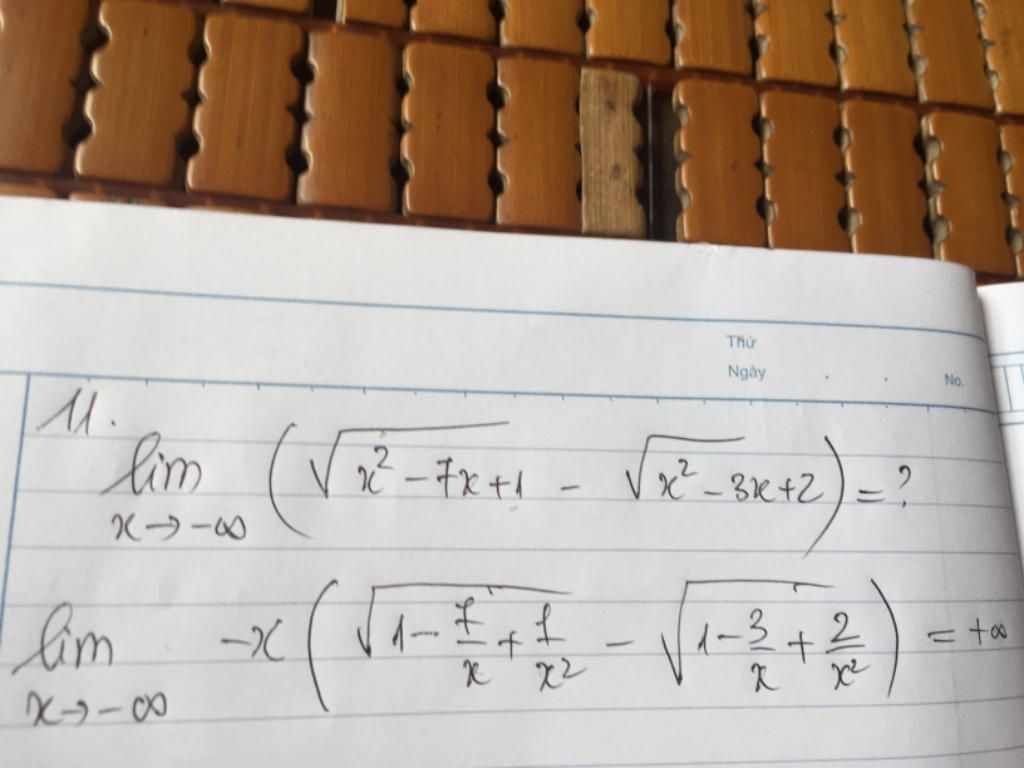 Thứ
Ngày . . No.
11.
lim x→-∞ (√(x² - 7x + 1) - √(x² - 3x + 2)) = ?
lim x→-∞ -x (√(1 - 7/x + 1/x²) - √(1 - 3/x + 2/x²)) = +∞